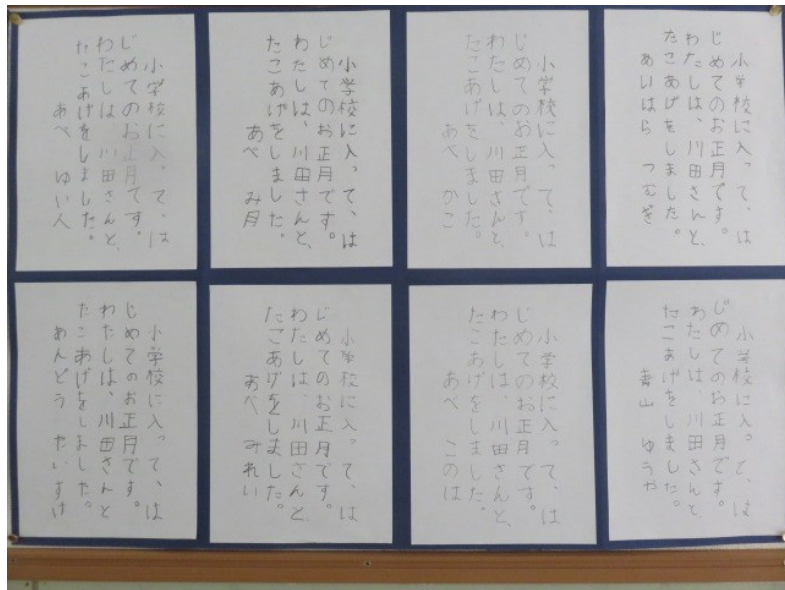 小学校に入って、は
じめてのお正月です。
わたしは、川田さんと、
たこあげをしました。
あいはら つむぎ
小学校に入って、は
じめてのお正月です。
わたしは、川田さんと、
たこあげをしました。
あべ かこ
小学校に入って、は
じめてのお正月です。
わたしは、川田さんと、
たこあげをしました。
あべ み月
小学校に入って、は
じめてのお正月です。
わたしは、川田さんと、
たこあげをしました。
あべ ゆい人
小学校に入って、は
じめてのお正月です。
わたしは、川田さんと、
たこあげをしました。
青山 ゆうや
小学校に入って、は
じめてのお正月です。
わたしは、川田さんと、
たこあげをしました。
あべ このは
小学校に入って、は
じめてのお正月です。
わたしは、川田さんと、
たこあげをしました。
あべ みれい
小学校に入って、は
じめてのお正月です。
わたしは、川田さんと
たこあげをしました。
あんどう たいすけ